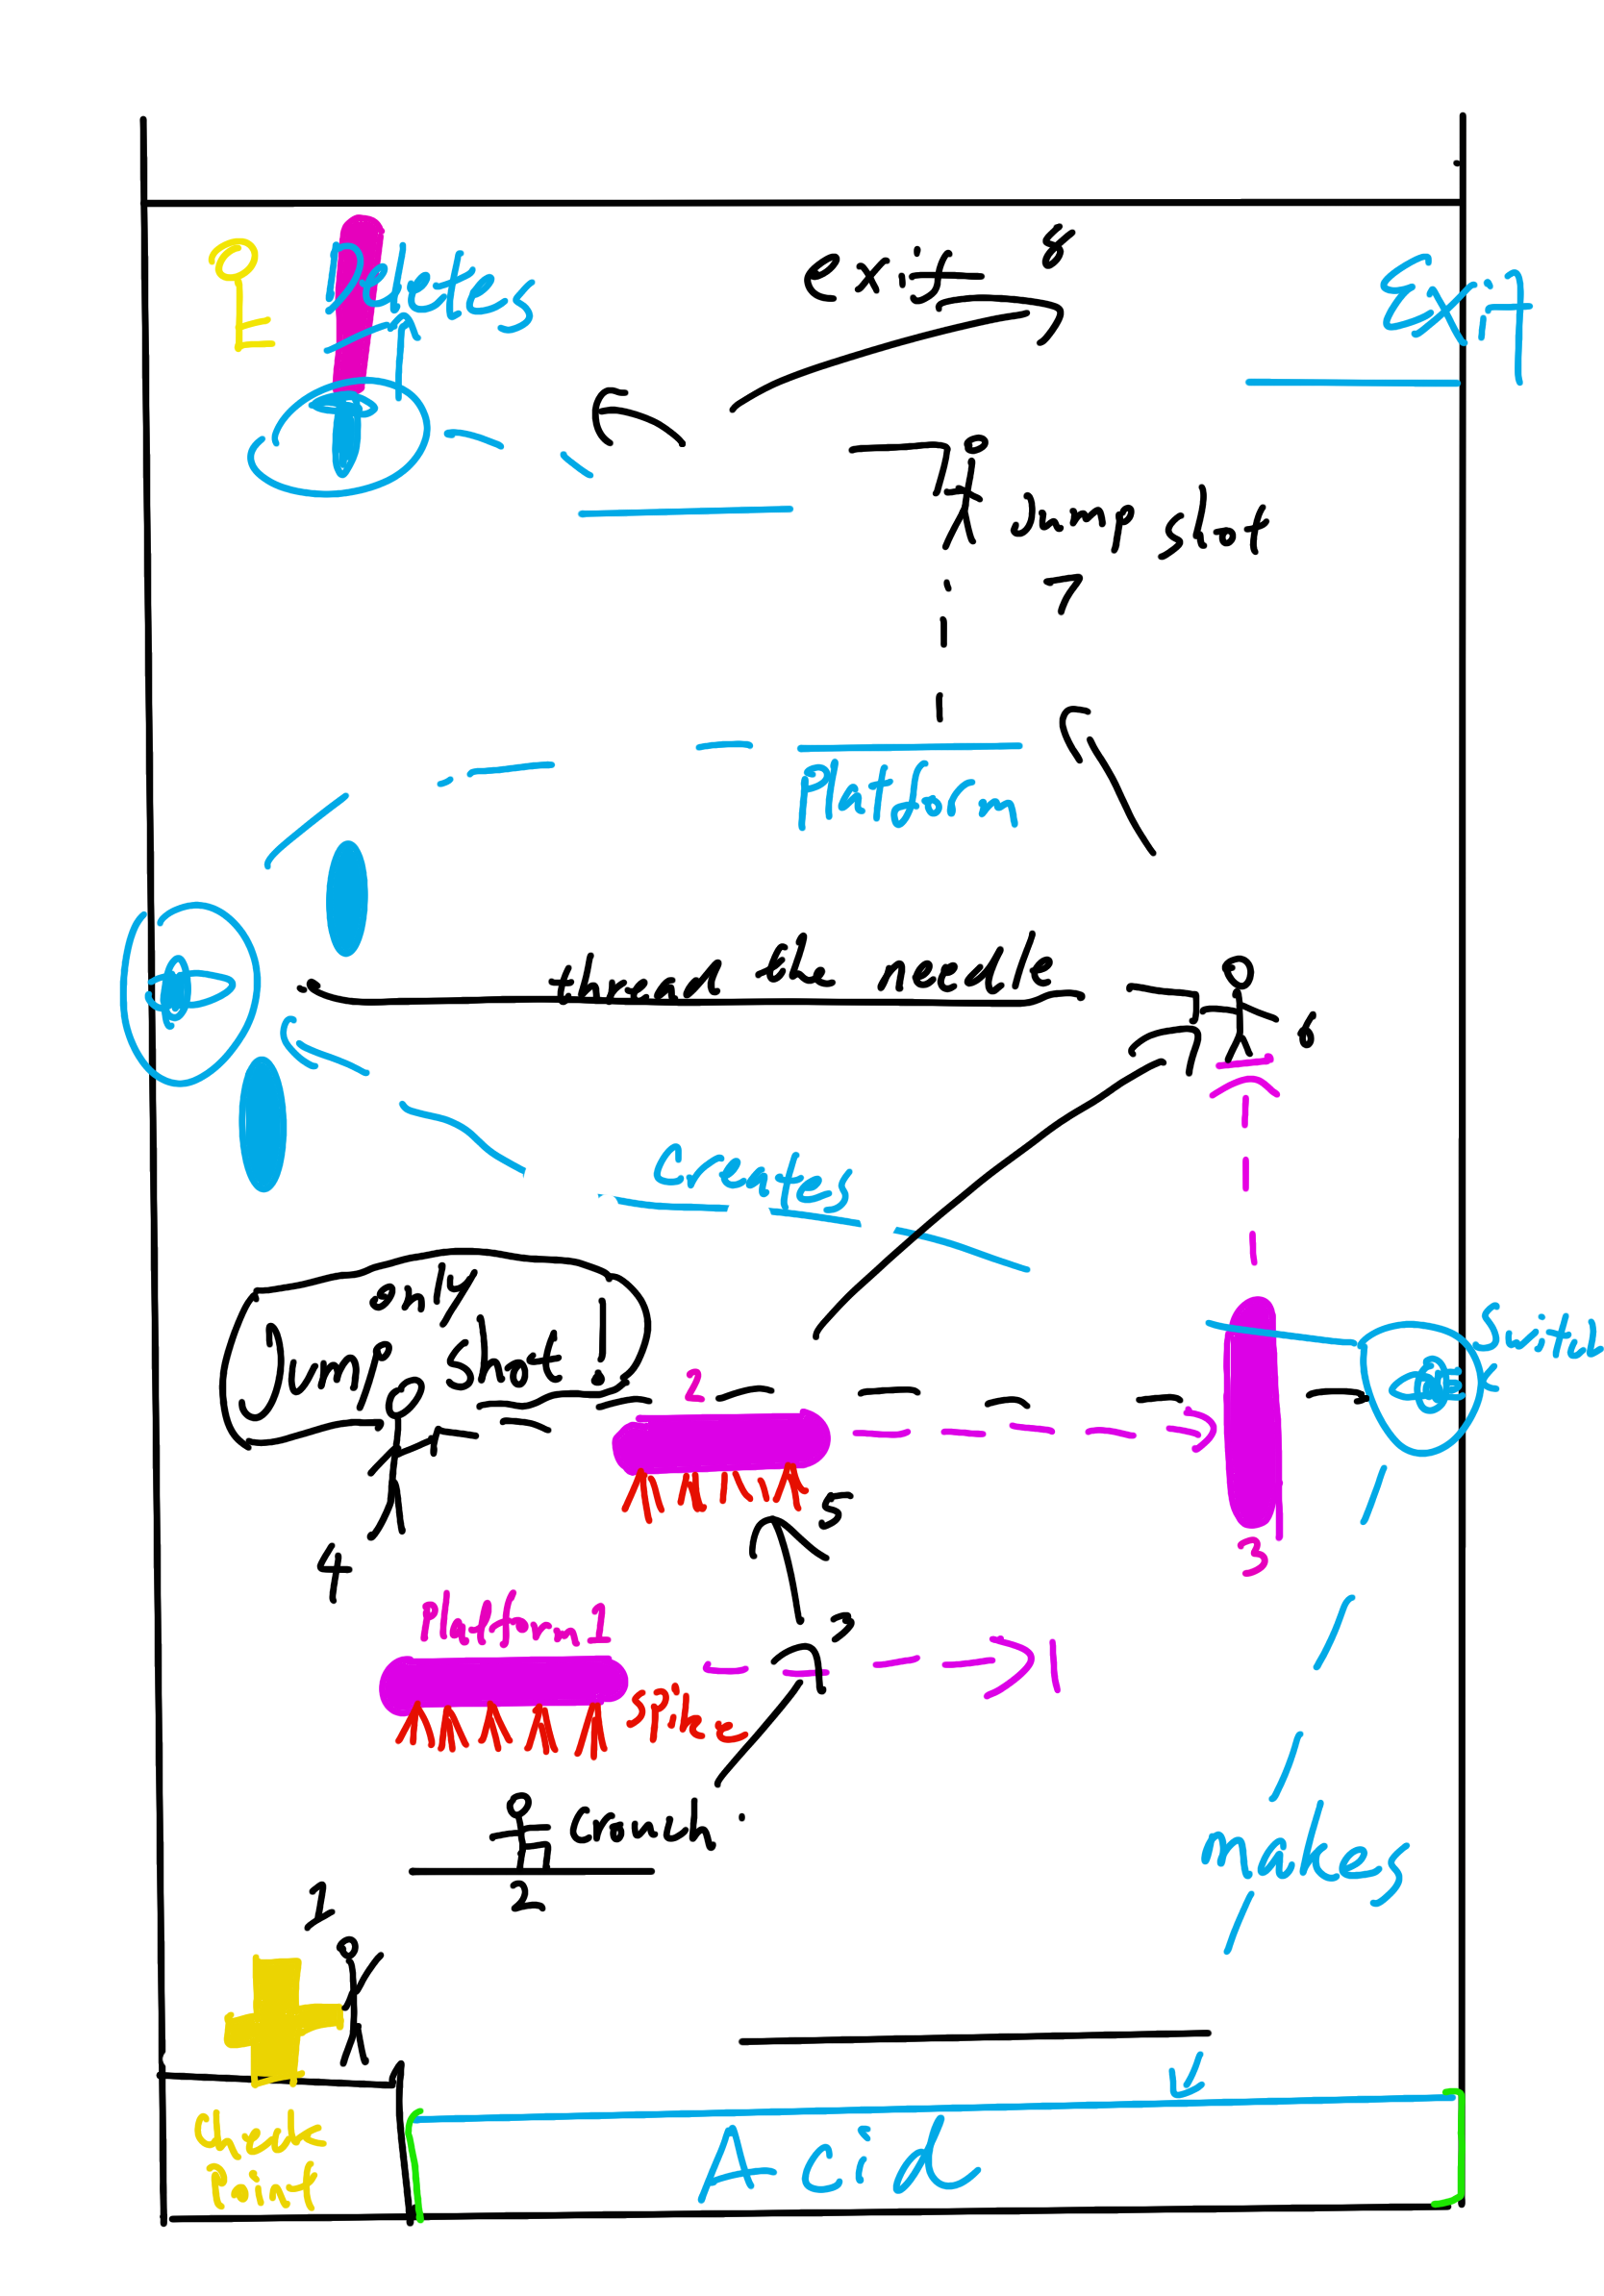 exit 8
Exit
Jump shot
7
Platform
thread the needle
6
Creates
only
Jump shot!
Switch
2
4
5
3
Platform 1
3
1
Spike
crouch
2
makes
1
Check
Point
Acid